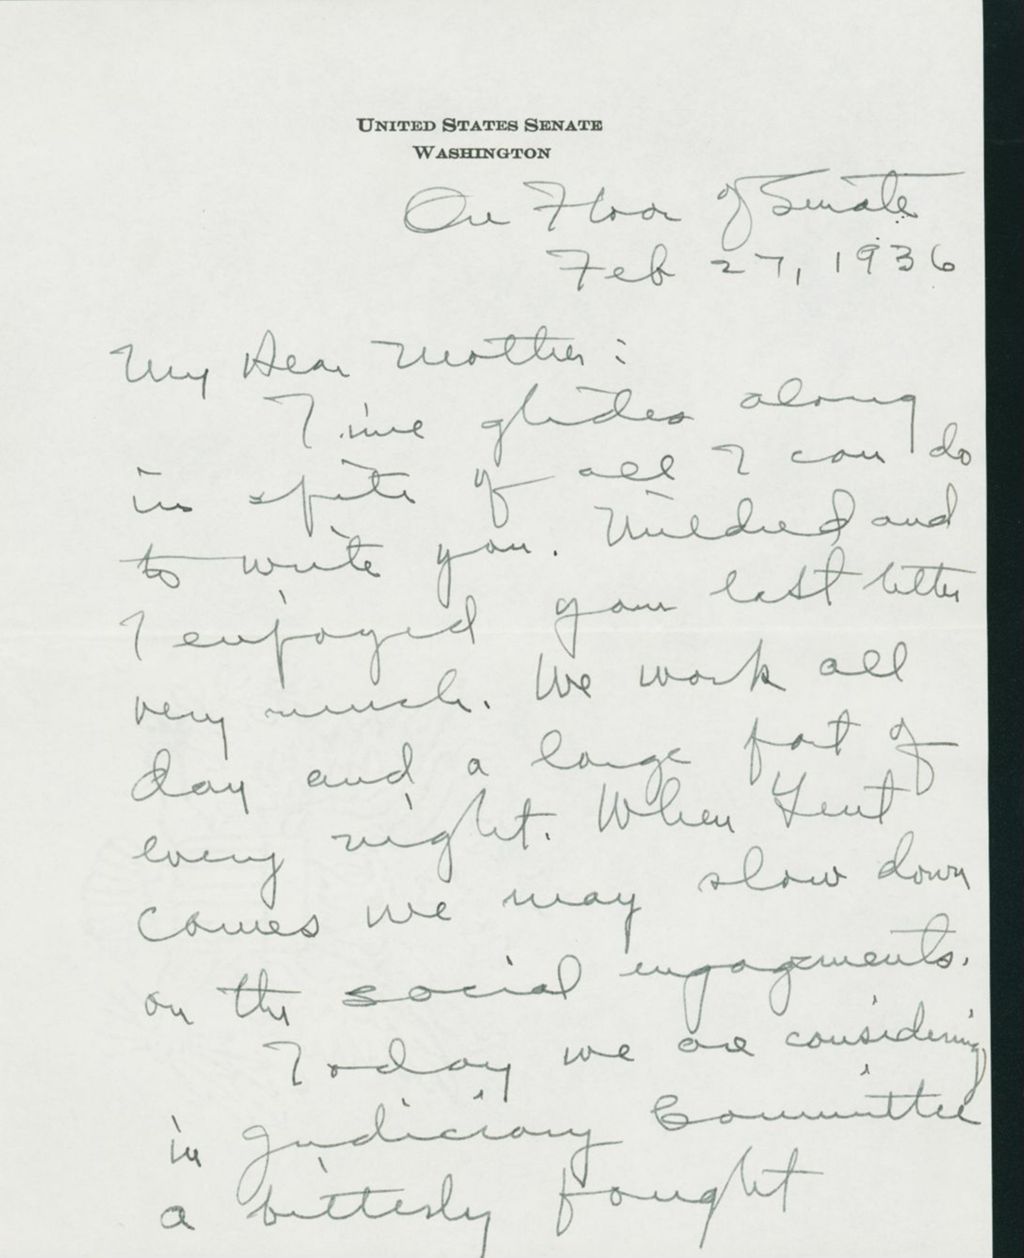 UNITED STATES SENATE
WASHINGTON
On Floor of Senate
Feb 27, 1936
My Dear Mother:
Time glides along
in spite of all I can do
to write you. Mildred and
I enjoyed your last letter
very much. We work all
day and a large part of
every night. When Lent
comes we may slow down
on the social engagements.
Today we are considering
in Judiciary Committee
a bitterly fought